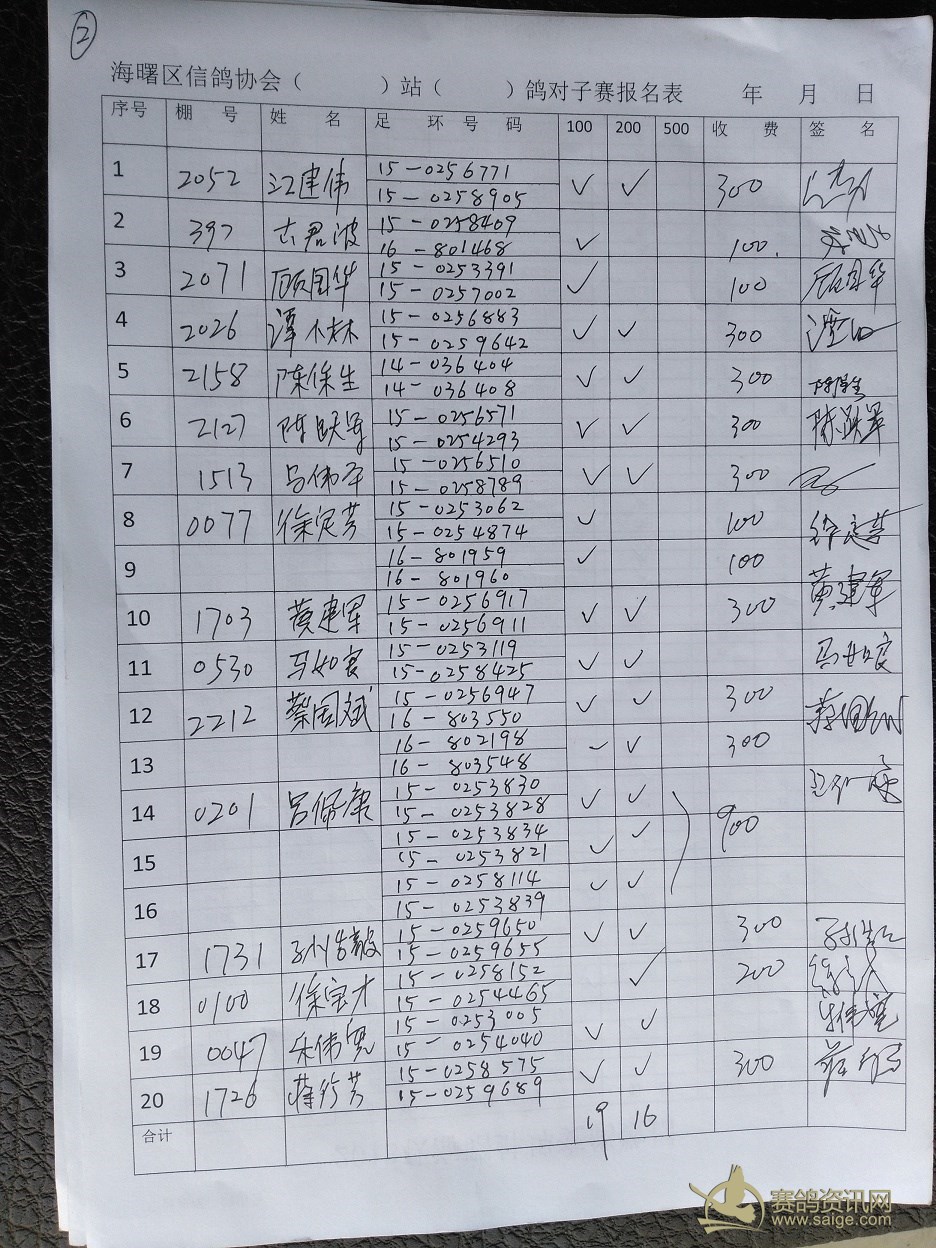 2
海曙区信鸽协会（ ）站（ ）鸽对子赛报名表 年 月 日
序号 棚号 姓名 足环号码 100 200 500 收费 签名
1 2052 江建伟 15-0256771 ✓ ✓ 300
15-0258905
2 397 古君波 15-0258409 ✓ 100.
16-801468
3 2071 顾国华 15-0253391 ✓ 100 顾国华
15-0257002
4 2026 潭小林 15-0256883 ✓ ✓ 300
15-0259642
5 2158 陈保生 14-036404 ✓ ✓ 300
14-036408
6 2127 陈跃军 15-0256571 ✓ ✓ 300 陈跃军
15-0254293
7 1513 15-0256510 ✓ ✓ 300
15-0258789
8 0077 徐定芳 15-0253062 ✓ 100 徐定芳
15-0254874
9 16-801959 ✓ 100
16-801960
10 1703 黄建军 15-0256917 ✓ ✓ 300 黄建军
15-0256911
11 0530 马如良 15-0253119 ✓ ✓ 马如良
15-0258425
12 2212 蔡国斌 15-0256947 ✓ ✓ 300
16-803550
13 16-802198 ✓ ✓ 300
16-803548
14 0201 吕佩康 15-0253830 ✓ ✓
15-0253828
15 15-0253834 ✓ ✓ 900
15-0253821
16 15-0258114 ✓ ✓
15-0253839
17 1731 15-0259650 ✓ ✓ 300
15-0259655
18 0100 徐宝才 15-0258152 ✓ 200
15-0254465
19 0047 朱伟宽 15-0253005 ✓ ✓ 朱伟宽
15-0254040
20 1726 蒋行芳 15-0258575 ✓ ✓ 300
15-0259689
合计 19 16
赛鸽资讯网
www.saige.com